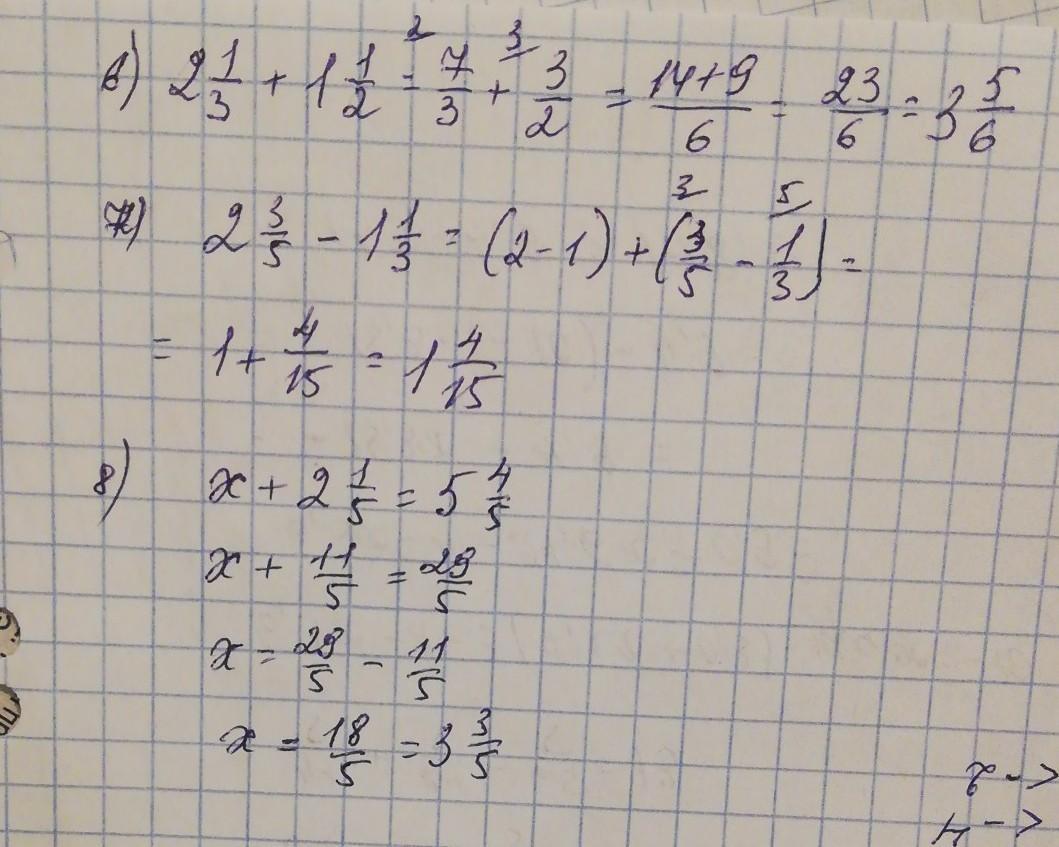 6) 2 1/3 + 1 1/2 = 7/3 ² + 3/2 ³ = (14+9)/6 = 23/6 = 3 5/6
7) 2 3/5 - 1 1/3 = (2-1) + (3/5 ³ - 1/3 ⁵) =
= 1 + 4/15 = 1 4/15
8) x + 2 1/5 = 5 4/5
x + 11/5 = 29/5
x = 29/5 - 11/5
x = 18/5 = 3 3/5